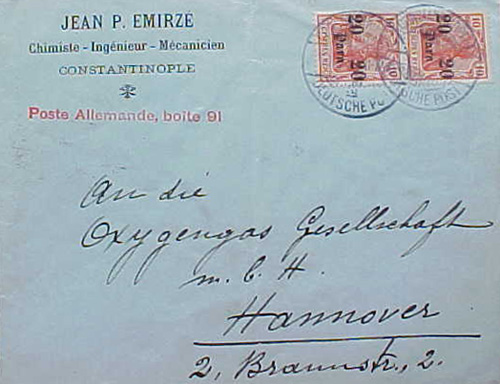 JEAN P. EMIRZÉ
Chimiste - Ingénieur - Mécanicien
CONSTANTINOPLE
Poste Allemande, boite 91
10 20 20 10
Para
10 20 20 10
Para
DEUTSCHE POST
An die
Oxygengas Gesellschaft
m. b. H.
Hannover
2, Braunstr., 2.